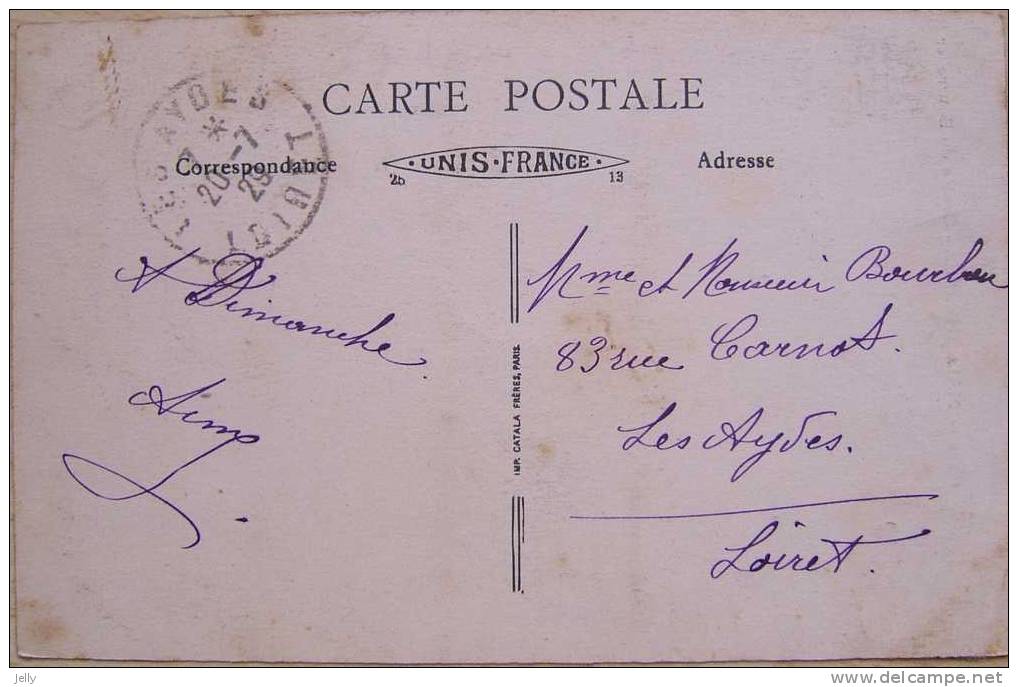 CARTE POSTALE
LES AYDES
LOIRET
*
20 -7
Correspondance
UNIS·FRANCE
Adresse
25
13
A Dimanche
Mme et Monsieur Bourbon
83 rue Carnot.
Les Aydes.
Loiret.
IMP. CATALA FRÈRES, PARIS.
Jelly
www.delcampe.net